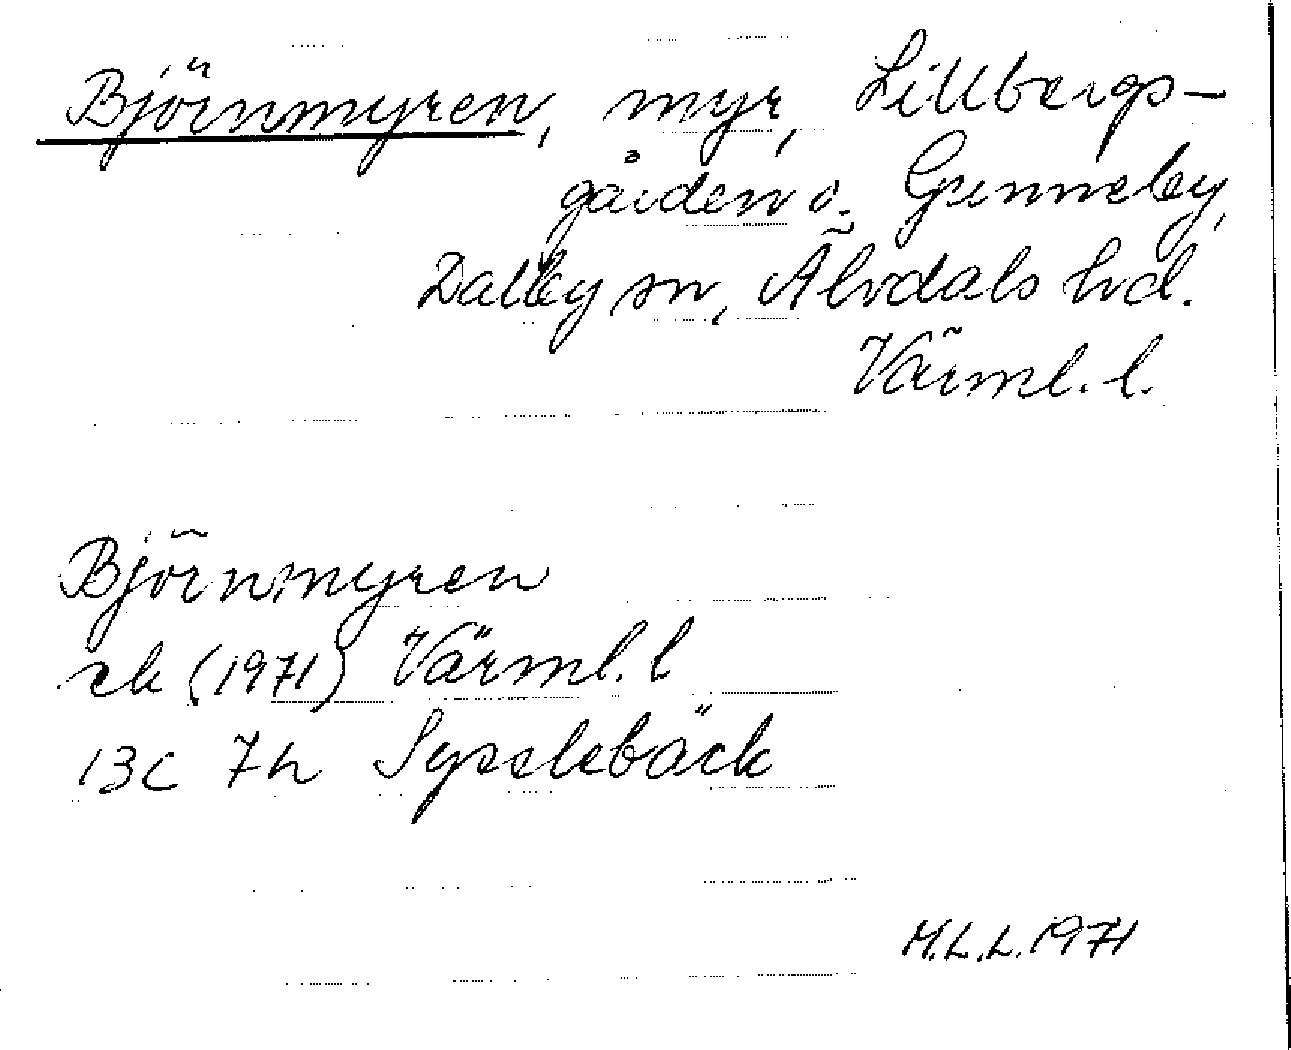 Björnmyren, myr, Lillbergs-
gården o. Gunneby,
Dalby sn, Älvdals hd.
Värml. l.
Björnmyren
ek (1971) Värml. l
13C 7h Sysslebäck
M.L.L. 1971